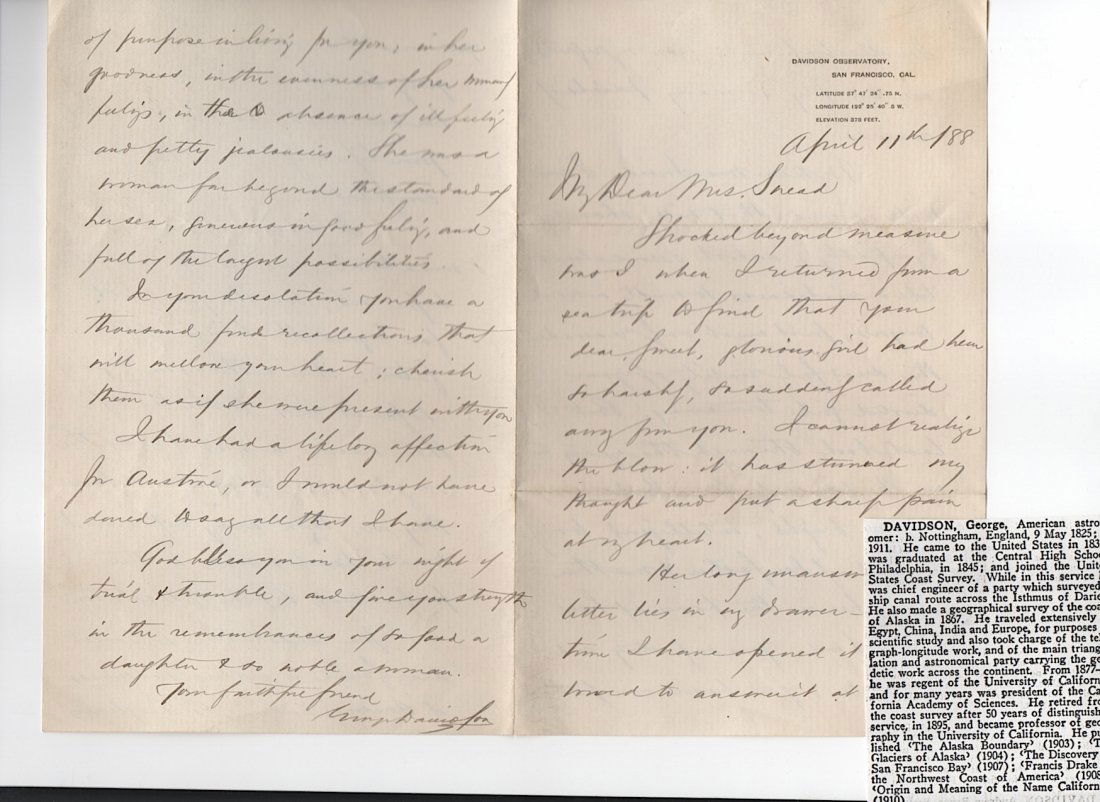 DAVIDSON OBSERVATORY,
SAN FRANCISCO, CAL.
LATITUDE 37° 47' 24" .75 N.
LONGITUDE 122° 25' 40" 5 W.
ELEVATION 375 FEET.
April 11th /88
My Dear Mrs. Snead
Shocked beyond measure
was I when I returned from a
sea trip to find that your
dear, sweet, glorious girl had been
so harshly, so suddenly called
away from you. I cannot realize
the blow: it has stunned my
thought and put a sharp pain
at my heart.
Her long
letter lies in my drawer -
time I have opened it
to answer it at
of purpose in living for you, in her
goodness, in the evenness of her womanly
feelings, in the absence of ill feeling
and petty jealousies. She was a
woman far beyond the standard of
her sex, generous in good feeling, and
full of the largest possibilities.
In your desolation you have a
thousand fond recollections that
will mellow your heart; cherish
them as if she were present with you
I have had a lifelong affection
for Austine, or I would not have
dared to say all that I have.
God bless you in your night of
trial & trouble, and give you strength
in the remembrances of so good a
daughter & so noble a woman.
Your faithful friend
George Davidson
DAVIDSON, George, American astro
omer: b. Nottingham, England, 9 May 1825;
1911. He came to the United States in 183
was graduated at the Central High Schoo
Philadelphia, in 1845; and joined the Unit
States Coast Survey. While in this service
was chief engineer of a party which surveyed
ship canal route across the Isthmus of Darie
He also made a geographical survey of the coa
of Alaska in 1867. He traveled extensively
Egypt, China, India and Europe, for purposes
scientific study and also took charge of the te
graph-longitude work, and of the main triang
lation and astronomical party carrying the ge
detic work across the continent. From 1877-
he was regent of the University of Californ
and for many years was president of the Ca
fornia Academy of Sciences. He retired fro
the coast survey after 50 years of distinguish
service, in 1895, and became professor of geo
raphy in the University of California. He pu
lished 'The Alaska Boundary' (1903); 'T
Glaciers of Alaska' (1904); 'The Discovery
San Francisco Bay' (1907); 'Francis Drake
the Northwest Coast of America' (1908
'Origin and Meaning of the Name Californ
(1910)